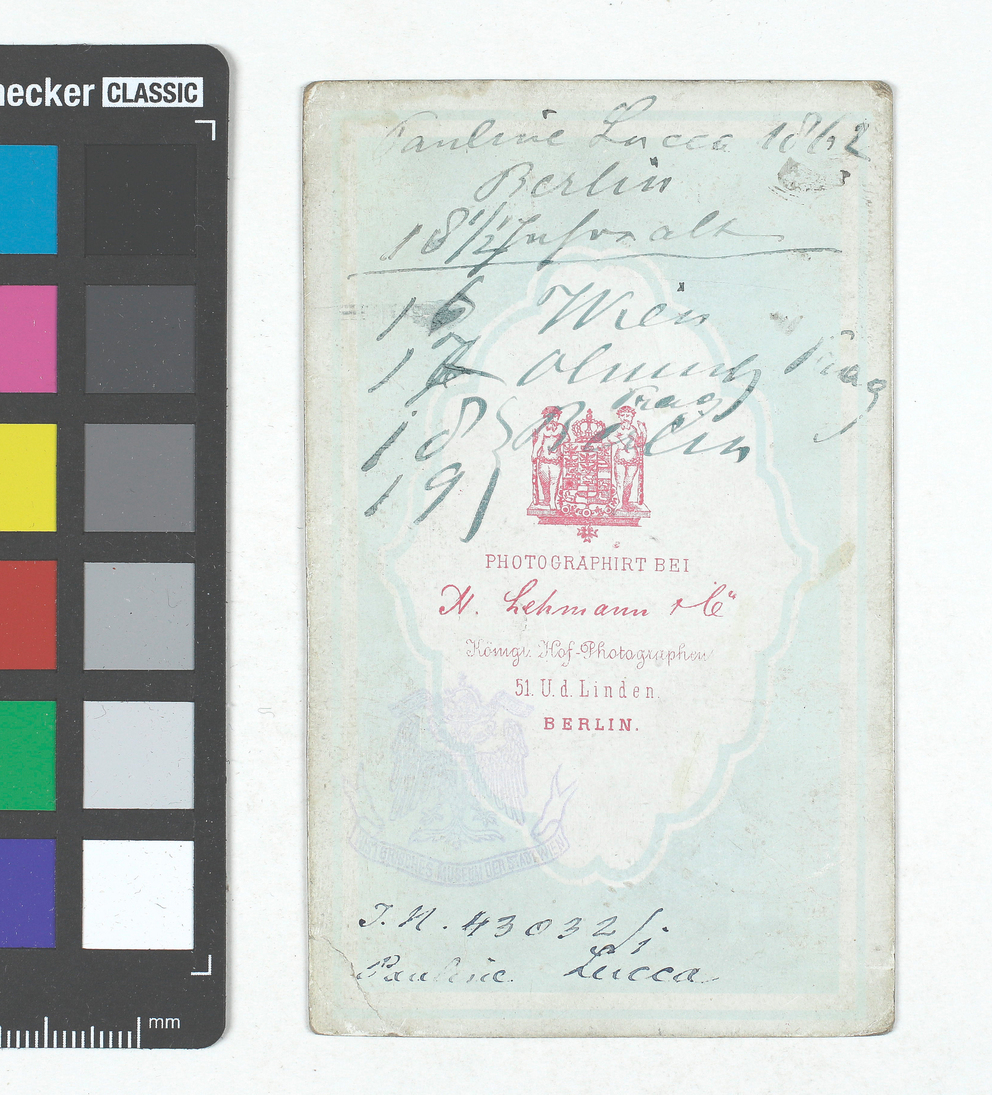 hecker CLASSIC
Pauline Lucca 1862
Berlin
18 1/2 Jahre alt
16 Wien
17 Olmütz Prag
Prag
18 Berlin
19
PHOTOGRAPHIRT BEI
H. Lehmann & Co
Königl. Hof-Photographen
51. U. d. Linden.
BERLIN.
HISTORISCHES MUSEUM DER STADT WIEN
I. N. 43032/1.
Pauline Lucca
mm